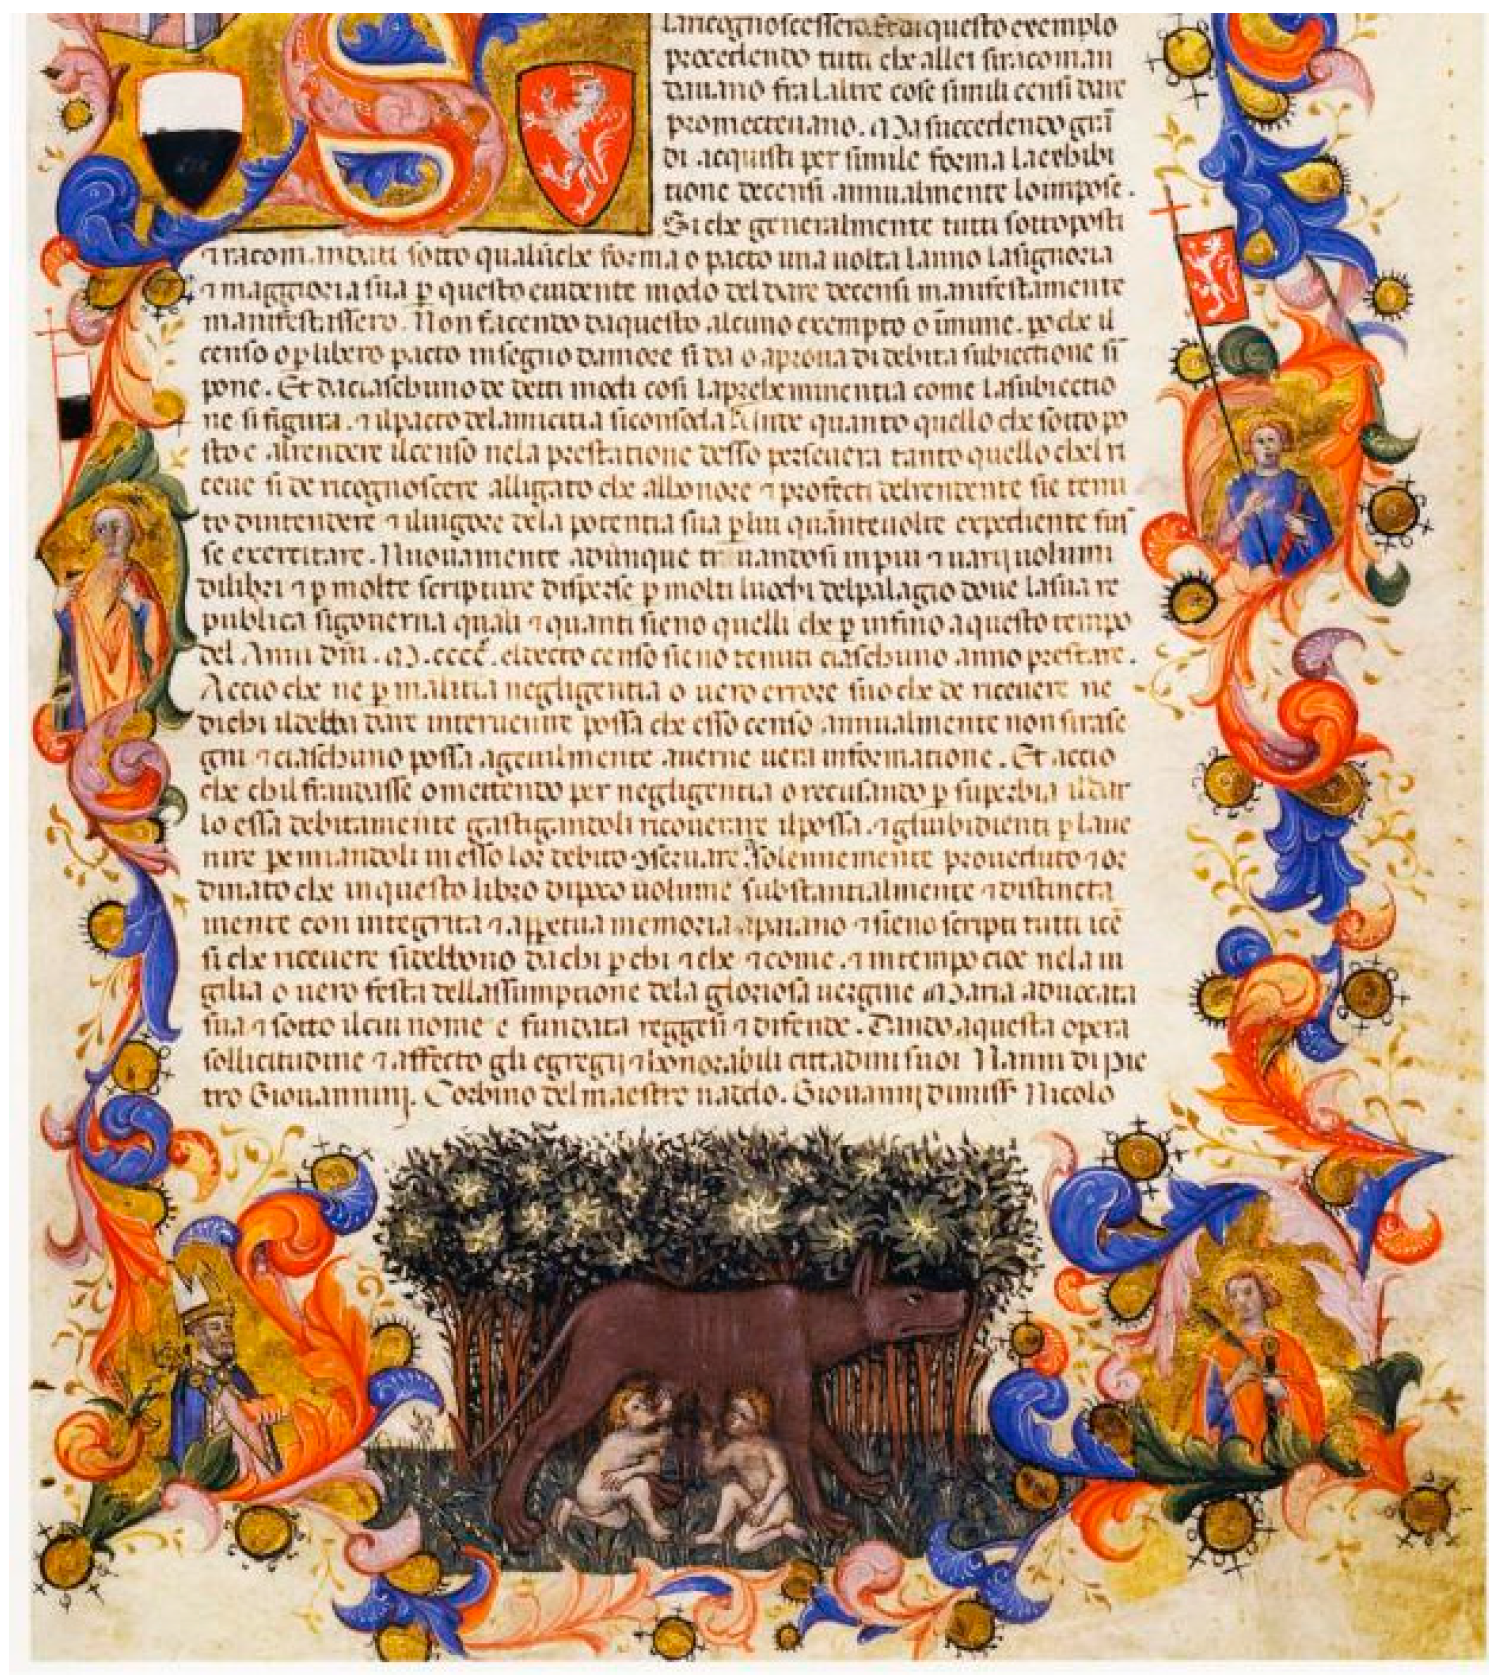 procedendo tutti che allei siracoman
davano fra laltre cose simili censi dare
promectevano. Ma succedendo grā
di acquisti per simile forma la exhibi
tione decensi annualmente lo impose.
Siche generalmente tutti sottoposti
⁊ racomandati sotto qualūche forma o pacto una volta lanno la signoria
⁊ maggioria sua p questo evidente modo del dare decensi manifestamente
manifestassero. Non facendo da questo alcuno exempto o īmune. po che il
censo o p libero pacto in segno damore si da o a prova di debita subiectione sī
pone. Et da ciaschuno de detti modi cosi la preheminentia come la subiectio
ne si figura. ⁊ il pacto del amicitia si quanto quello che sotto po
sto e al rendere il censo nela prestatione desso persevera tanto quello chel ri
ceve si de ricognoscere alligato che al honore ⁊ profecti del rendente sie tenu
to dintendere ⁊ il vigore dela potentia sua p lui quante volte expediente fus
se exercitare. Nuovamente adunque trovandosi in piu ⁊ varij volumi
di libri ⁊ p molte scripture disperse p molti luochi del palagio dove la sua re
publica si governa quali ⁊ quanti sieno quelli che p infino a questo tempo
del Anni dm̄. M.cccc. el decto censo sieno tenuti ciaschuno anno prestare.
Accio che ne p malitia negligentia o vero errore suo che de ricevere ne
di chi il debba dare intervenire possa che esso censo annualmente non si rase
gni ⁊ ciaschuno possa agevilmente averne vera informatione. Et accio
che chil fraudasse o mettendo per negligentia o recusando p superbia il dar
lo essa debitamente gastigandoli ricoverare il possa. ⁊ gliubidienti p lave
nire in esso lor debito 9servare. Solennemente proveduto ⁊ or
dinato che in questo libro di poco volume substantialmente ⁊ distincta
mente con integrita ⁊ appetua memoria apaiano ⁊ sieno scripti tutti i cē
si che ricevere si debbono da chi p chi ⁊ che ⁊ come. ⁊ in tempo cioe nela vi
gilia o vero festa dell assumptione dela gloriosa vergine Maria advocata
sua ⁊ sotto il cui nome e fundata reggesi ⁊ difende. Dando a questa opera
sollicitudine ⁊ affecto gli egregij ⁊ honorabili cittadini suoi Nanni di Pie
tro Giovannini. Corbino del maestro naddo. Giovanni di miss Nicolo